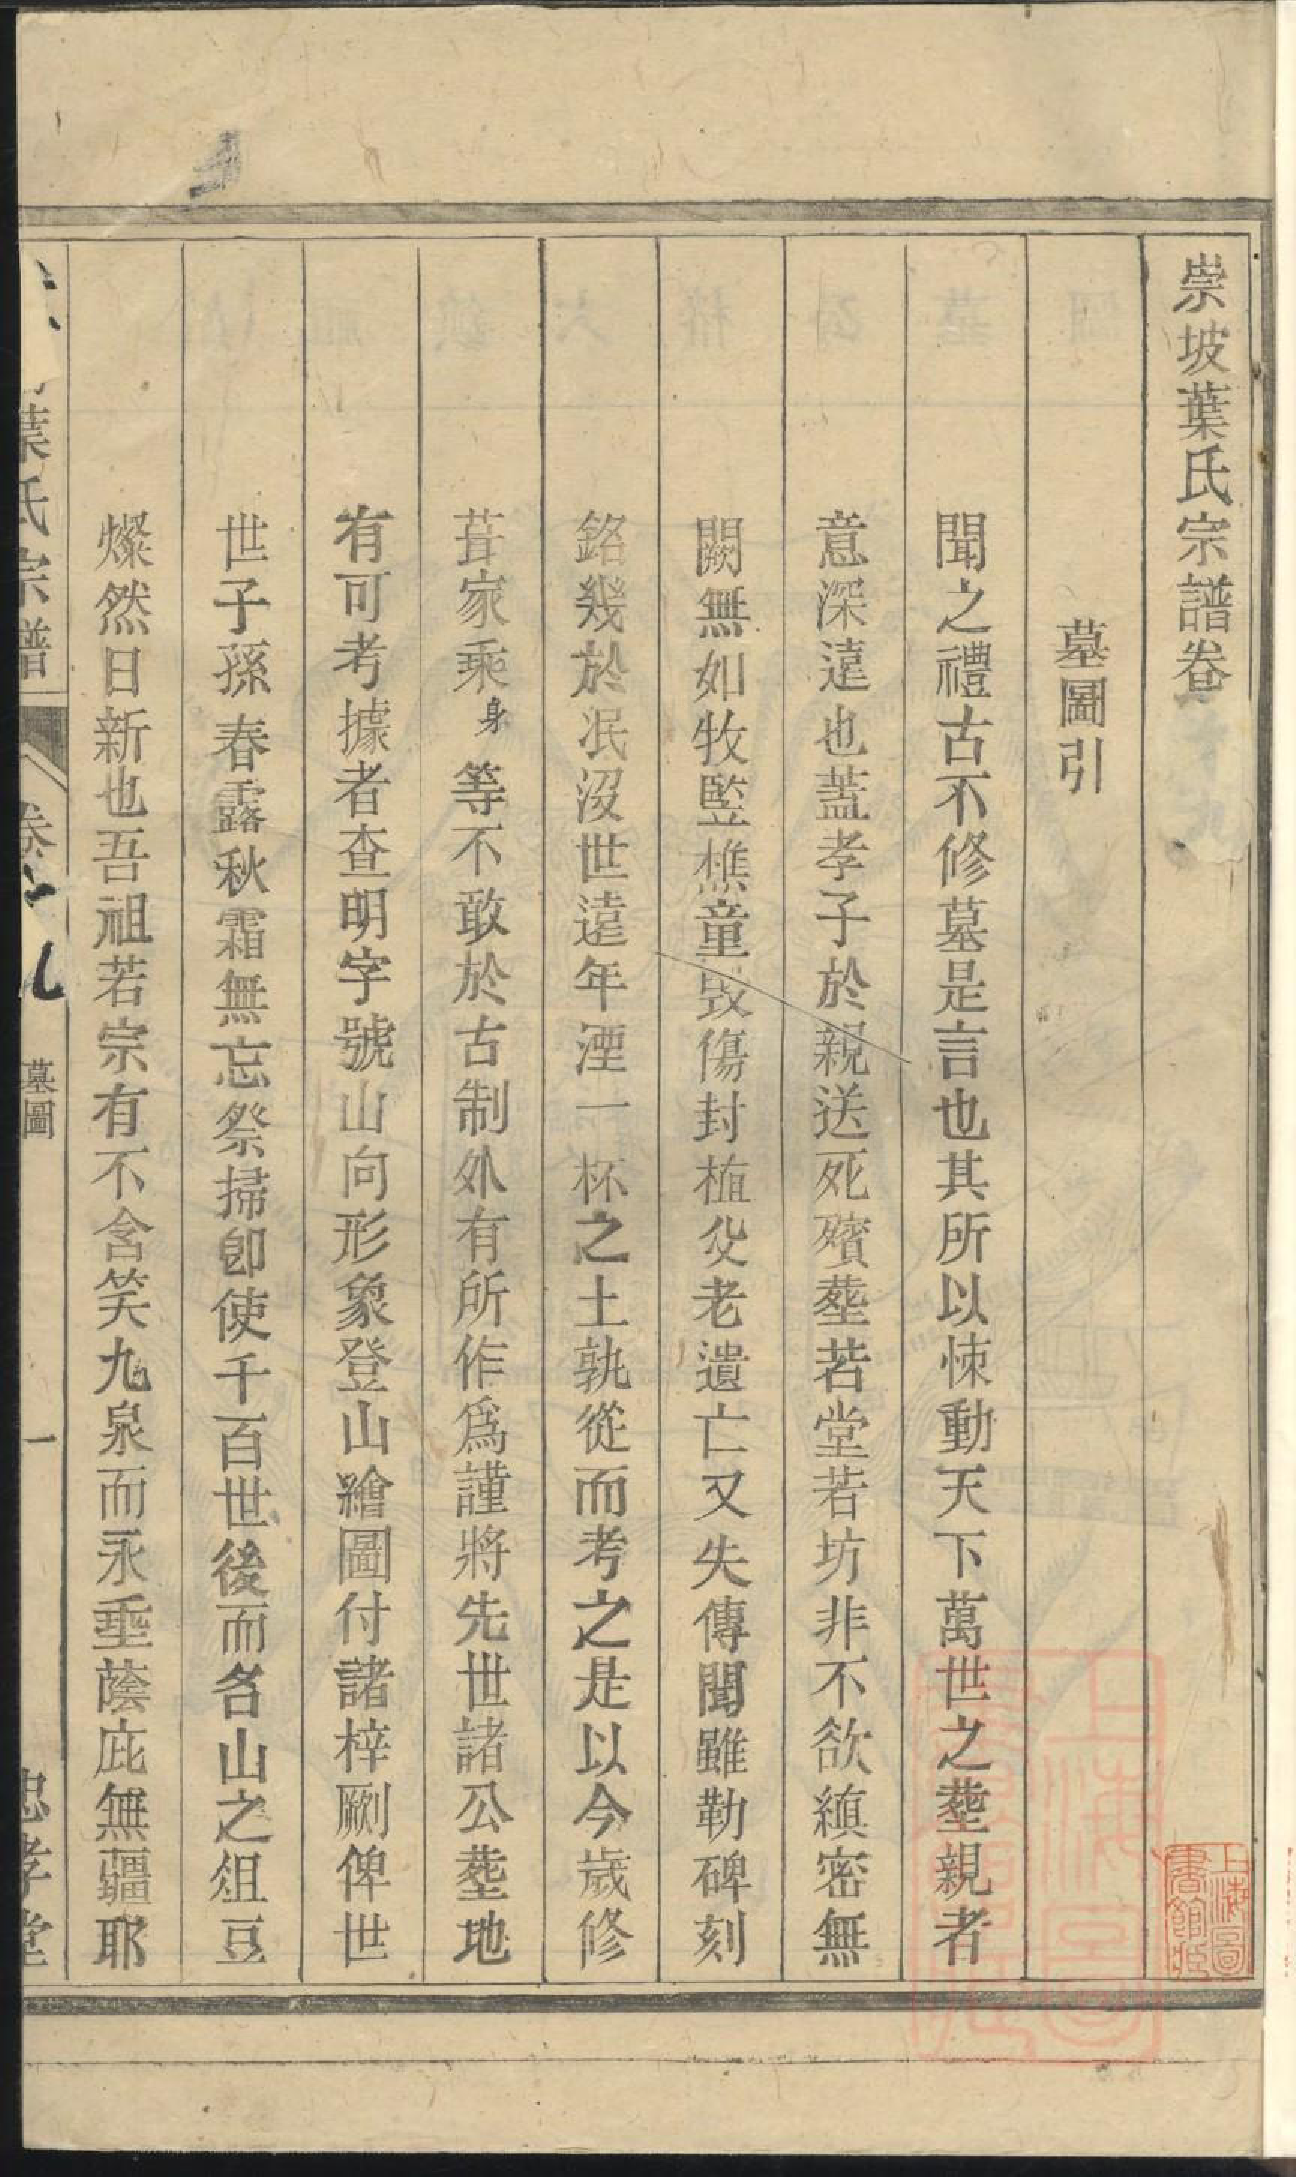 崇坡葉氏宗譜卷
墓圖引
聞之禮古不修墓是言也其所以悚動天下萬世之塟親者
意深遠也蓋孝子於親送死殯塟若堂若坊非不欲縝密無
闕無如牧監樵童毀傷封植父老遺亡又失傳聞雖勒碑刻
銘幾於泯沒世遠年湮一杯之土孰從而考之是以今歲修
葺家乘身等不敢於古制外有所作爲謹將先世諸公塟地
有可考據者查明字號山向形象登山繪圖付諸梓劂俾世
世子孫春露秋霜無忘祭掃卽使千百世後而名山之俎豆
燦然日新也吾祖若宗有不含笑九泉而永垂蔭庇無疆耶
葉氏宗譜
卷
九
墓圖
一
忠孝堂
上海圖書館藏
上海圖書館藏